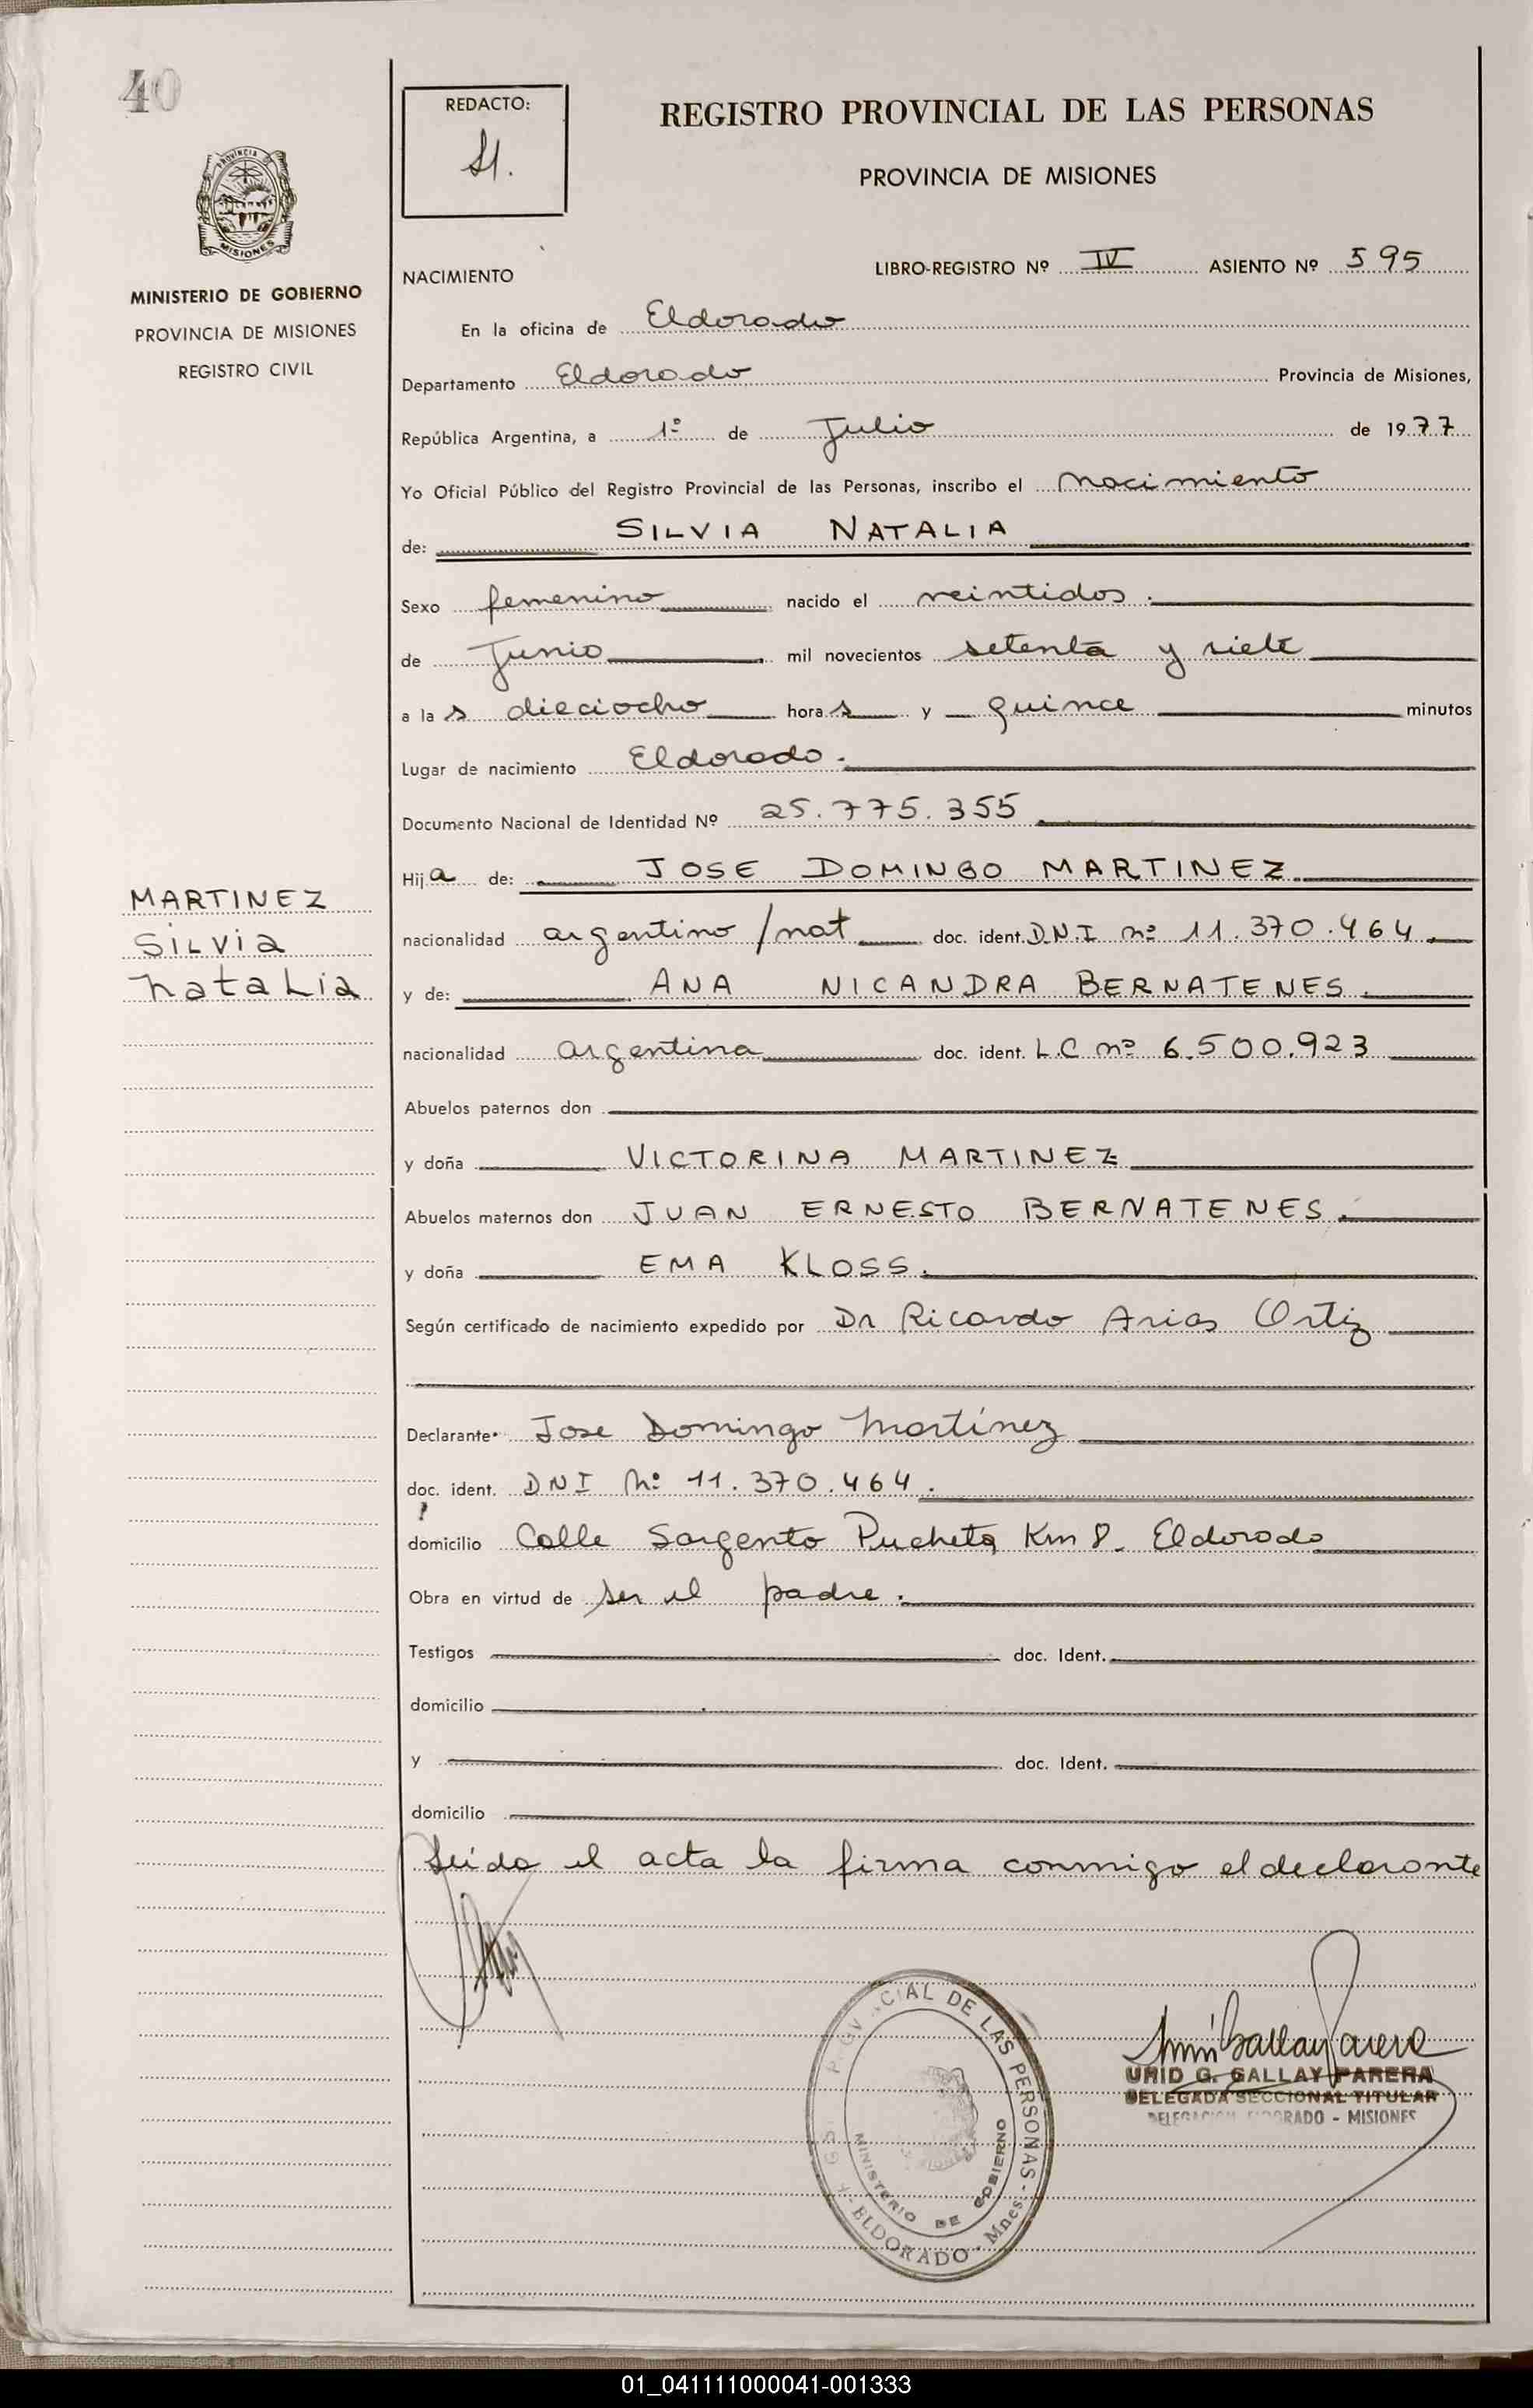 40
PROVINCIA DE
MISIONES
MINISTERIO DE GOBIERNO
PROVINCIA DE MISIONES
REGISTRO CIVIL
MARTINEZ
SILVIA
NATALIA
REDACTO:
REGISTRO PROVINCIAL DE LAS PERSONAS
PROVINCIA DE MISIONES
NACIMIENTO LIBRO-REGISTRO Nº IV ASIENTO Nº 595
En la oficina de Eldorado
Departamento Eldorado Provincia de Misiones,
República Argentina, a 1º de Julio de 1977
Yo Oficial Público del Registro Provincial de las Personas, inscribo el nacimiento
de: SILVIA NATALIA
Sexo femenino nacido el veintidos.
de Junio mil novecientos setenta y siete
a las dieciocho horas y quince minutos
Lugar de nacimiento Eldorado.
Documento Nacional de Identidad Nº 25.775.355
Hija de: JOSE DOMINGO MARTINEZ
nacionalidad argentino/nat doc. ident. D.N.I nº 11.370.464
y de: ANA NICANDRA BERNATENES.
nacionalidad argentina doc. ident. L.C nº 6.500.923
Abuelos paternos don
y doña VICTORINA MARTINEZ
Abuelos maternos don JUAN ERNESTO BERNATENES.
y doña EMA KLOSS.
Según certificado de nacimiento expedido por Dr Ricardo Arias Ortiz
Declarante Jose Domingo Martínez
doc. ident. DNI Nº 11.370.464.
domicilio Calle Sargento Pucheta Km 8. Eldorado
Obra en virtud de ser el padre.
Testigos doc. Ident.
domicilio
y doc. Ident.
domicilio
Leída el acta la firma conmigo el declarante
CIAL DE LAS PERSONAS - ELDORADO - Mnes.
MINISTERIO DE GOBIERNO
G. GALLAY PARERA
DELEGADA SECCIONAL TITULAR
DELEGACION ELDORADO - MISIONES
01_041111000041-001333